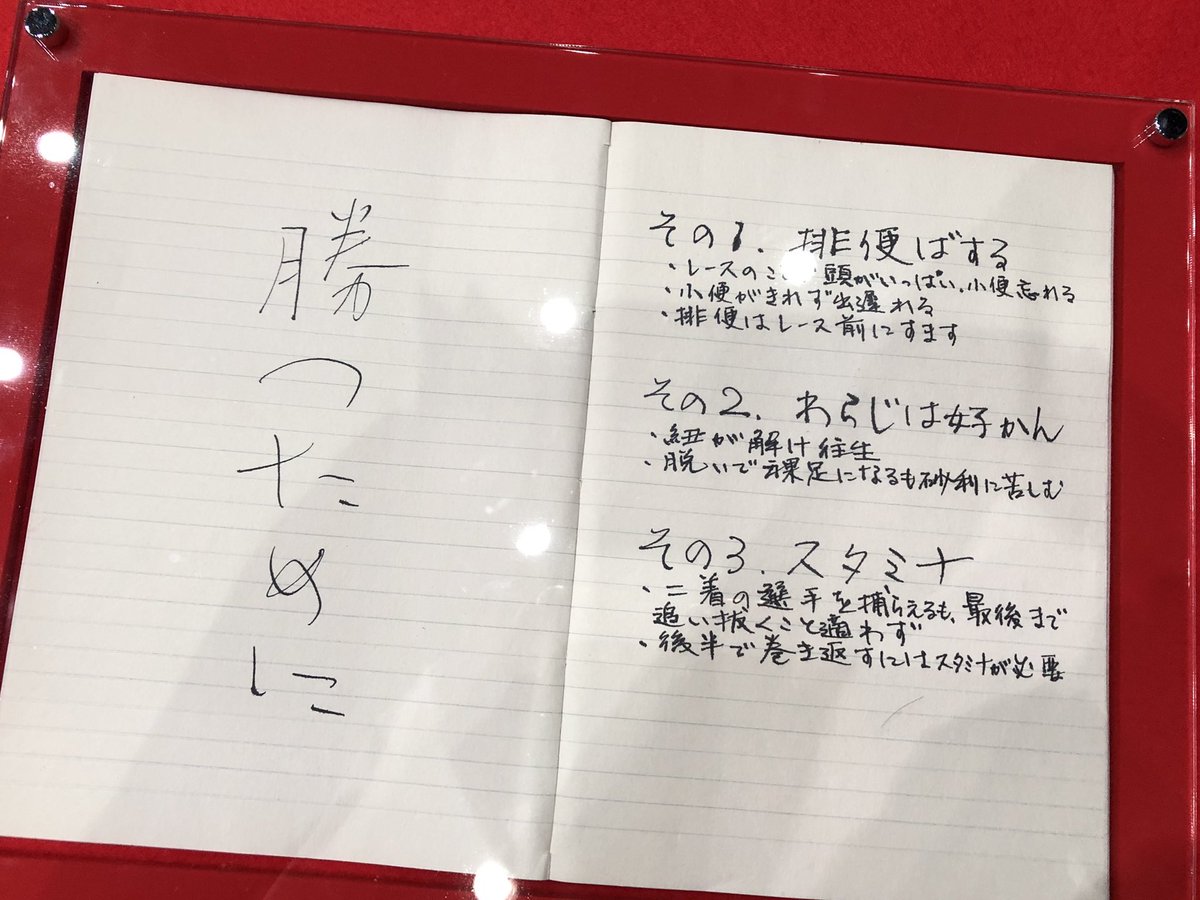 勝つために
その1. 排便ばする
・レースのこ 頭がいっぱい、小便忘れる
・小便がきれず出遅れる
・排便はレース前にすます
その2. わらじは好かん
・紐が解け往生
・脱いで裸足になるも砂利に苦しむ
その3. スタミナ
・二着の選手を捕らえるも、最後まで
追い抜くこと適わず
・後半で巻き返すにはスタミナが必要